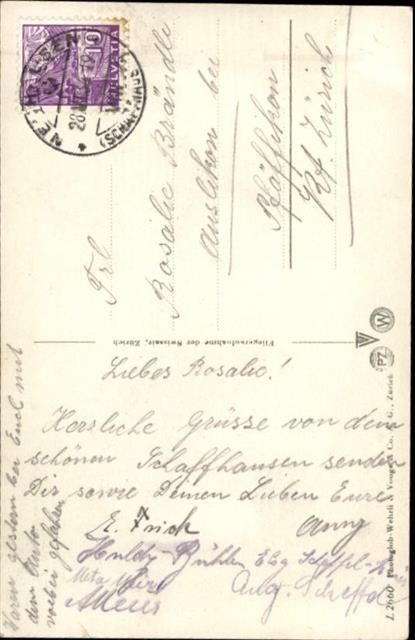 NEUHAUSEN
(SCHAFFH.)
HELVETIA
10
Frl
Rosalie Brändli
Auslikon bei
Pfäffikon
Kt. Zürich
Fliegeraufnahme der Swissair, Zürich
Liebes Rosalie!
Herzliche Grüsse von dem
schönen Schaffhausen senden
Dir sowie Deinen Lieben Eure
E. Frick Anny
Huldy Bühler
Meta
A Meier Aug.
Waren gestern bei Euch mit
dem Auto
vorbei gefahren
L 2660 Photoglob-Wehrli & Vouga & Co., A. G., Zürich
PZ
W
V